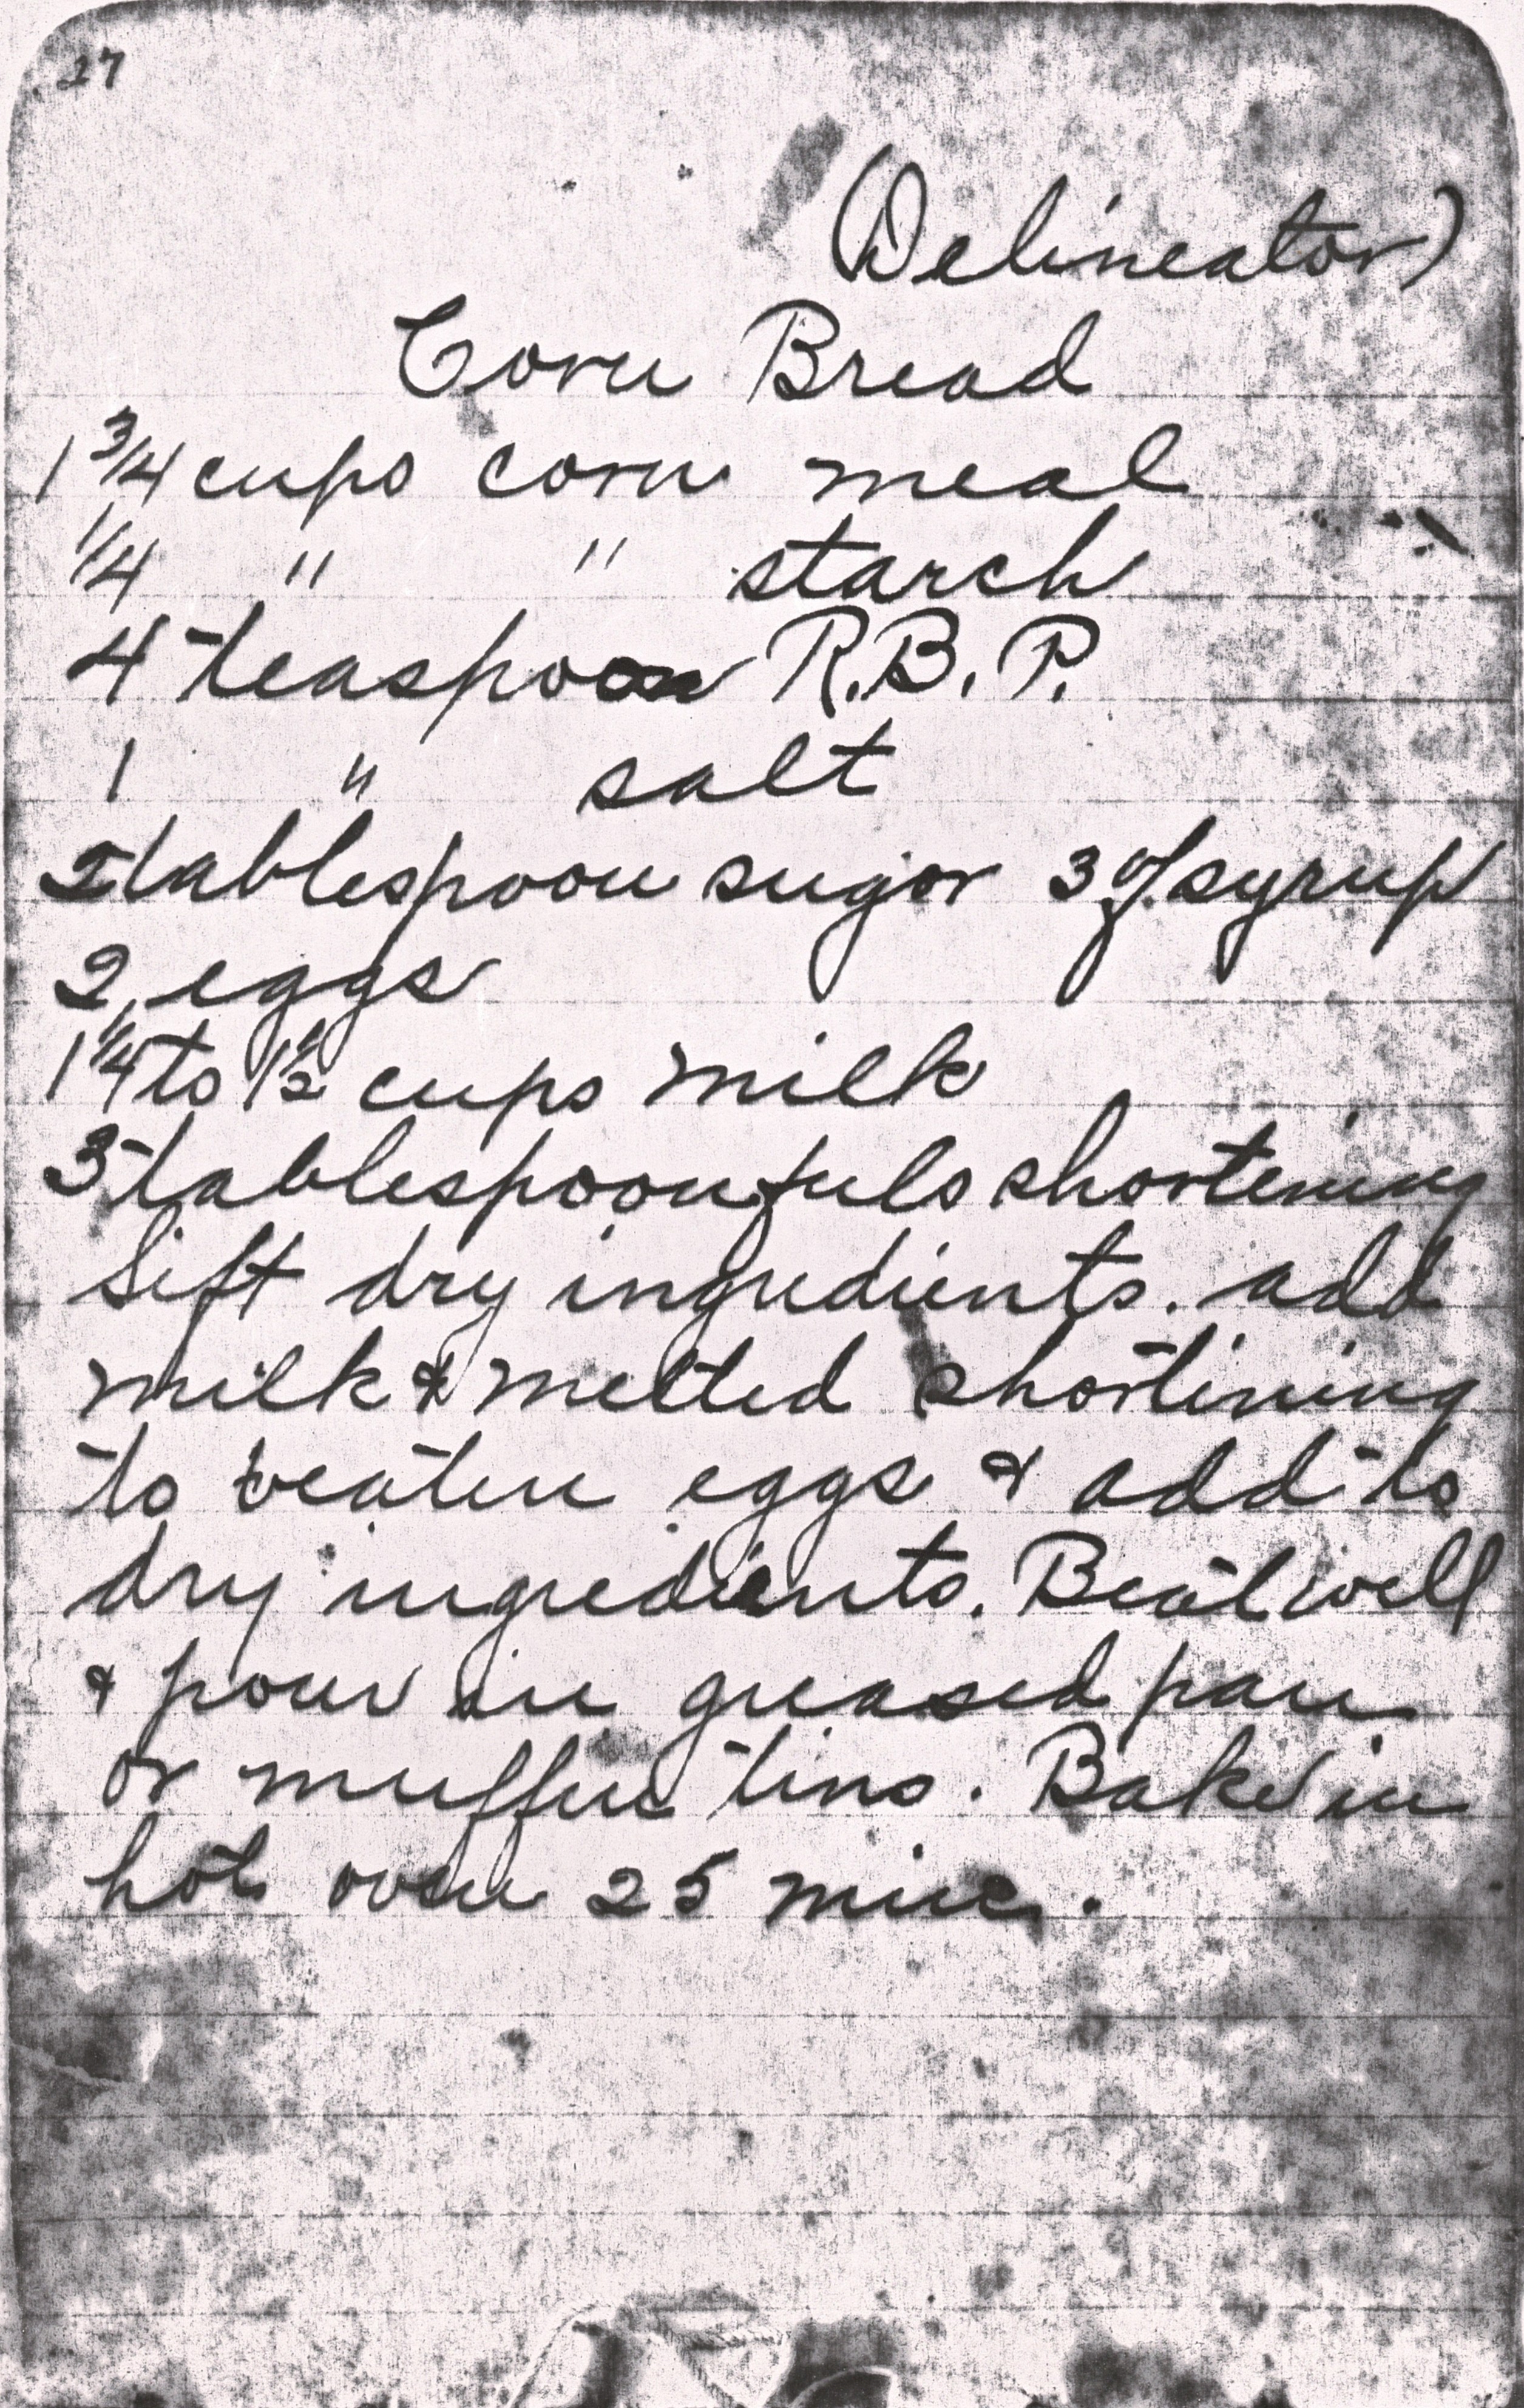 27
(Delineator)
Corn Bread
1 3/4 cups corn meal
1/4 " " starch
4 teaspoon R.B.P.
1 " salt
2 tablespoon sugar 3 of syrup
2 eggs
1 1/4 to 1 1/2 cups milk
3 tablespoonfuls shortening
Sift dry ingredients. add
milk & melted shortining
to beaten eggs & add to
dry ingredients. Beat well
& pour in greased pan
or muffin tins. Bake in
hot oven 25 min.